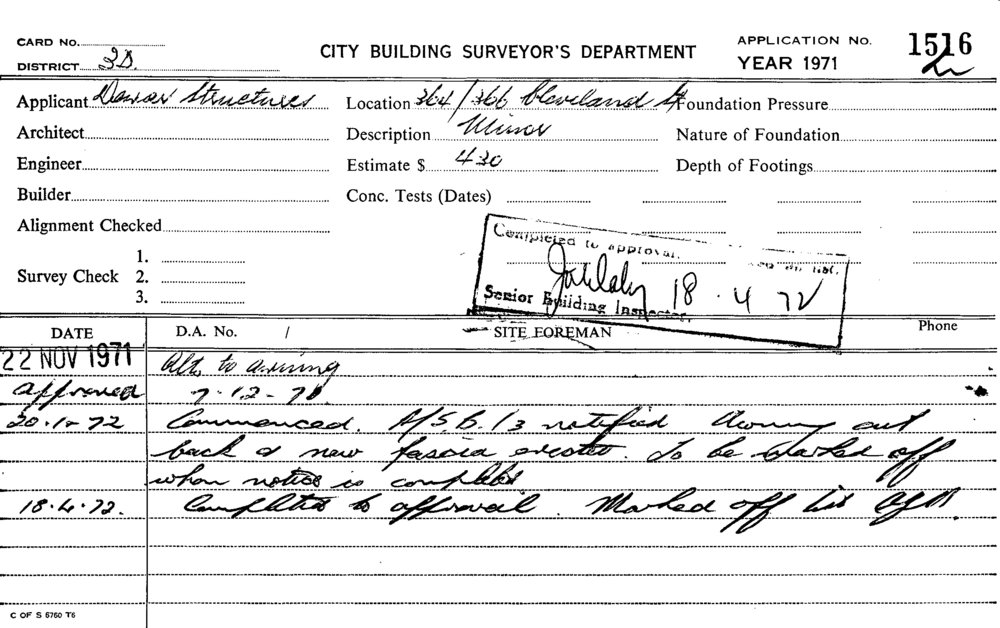 CARD No.
CITY BUILDING SURVEYOR'S DEPARTMENT
APPLICATION No. 1516
DISTRICT 3D.
YEAR 1971
Applicant Structures
Location 364/366 Cleveland St
Foundation Pressure
Architect
Description Minor
Nature of Foundation
Engineer
Estimate $ 430
Depth of Footings
Builder
Conc. Tests (Dates)
Alignment Checked
Survey Check
1.
2.
3.
Completed to approval.
list.
18.4.72
Senior Building Inspector.
DATE
D.A. No. /
SITE FOREMAN
Phone
22 NOV 1971 Alt. to awning
approved 7-12-71.
20.1.72 Commenced. notified Awning cut
back & new fascia erected. To be marked off
when notice is complete
18.4.72. Completed to approval. Marked off list
C OF S 5760 T6